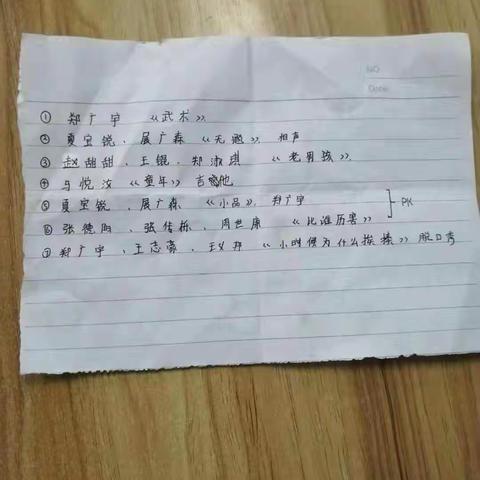 NO.
Date
① 郑广宇 《武术》
② 夏宝锐、展广森 《无题》, 相声
③ 赵甜甜、王锟、郑淑琪 《老男孩》
④ 马悦汝 《童年》 吉他
⑤ 夏宝锐、展广森 《小品》, 郑广宇
PK
⑥ 张德阳、张传栋、周世康 《比谁厉害》
⑦ 郑广宇、王志豪、王 《小时候为什么挨揍》 脱口秀